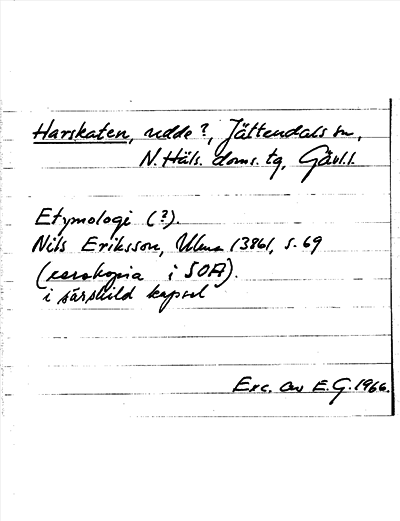 Harskaten, udde?, Jättendals sn,
N. Häls. doms. tg, Gävl.l.
Etymologi (?).
Nils Eriksson, 1386/, s. 69
(xerokopia i SOFI).
i särskild kapsel
Exc. av E.G. 1966.